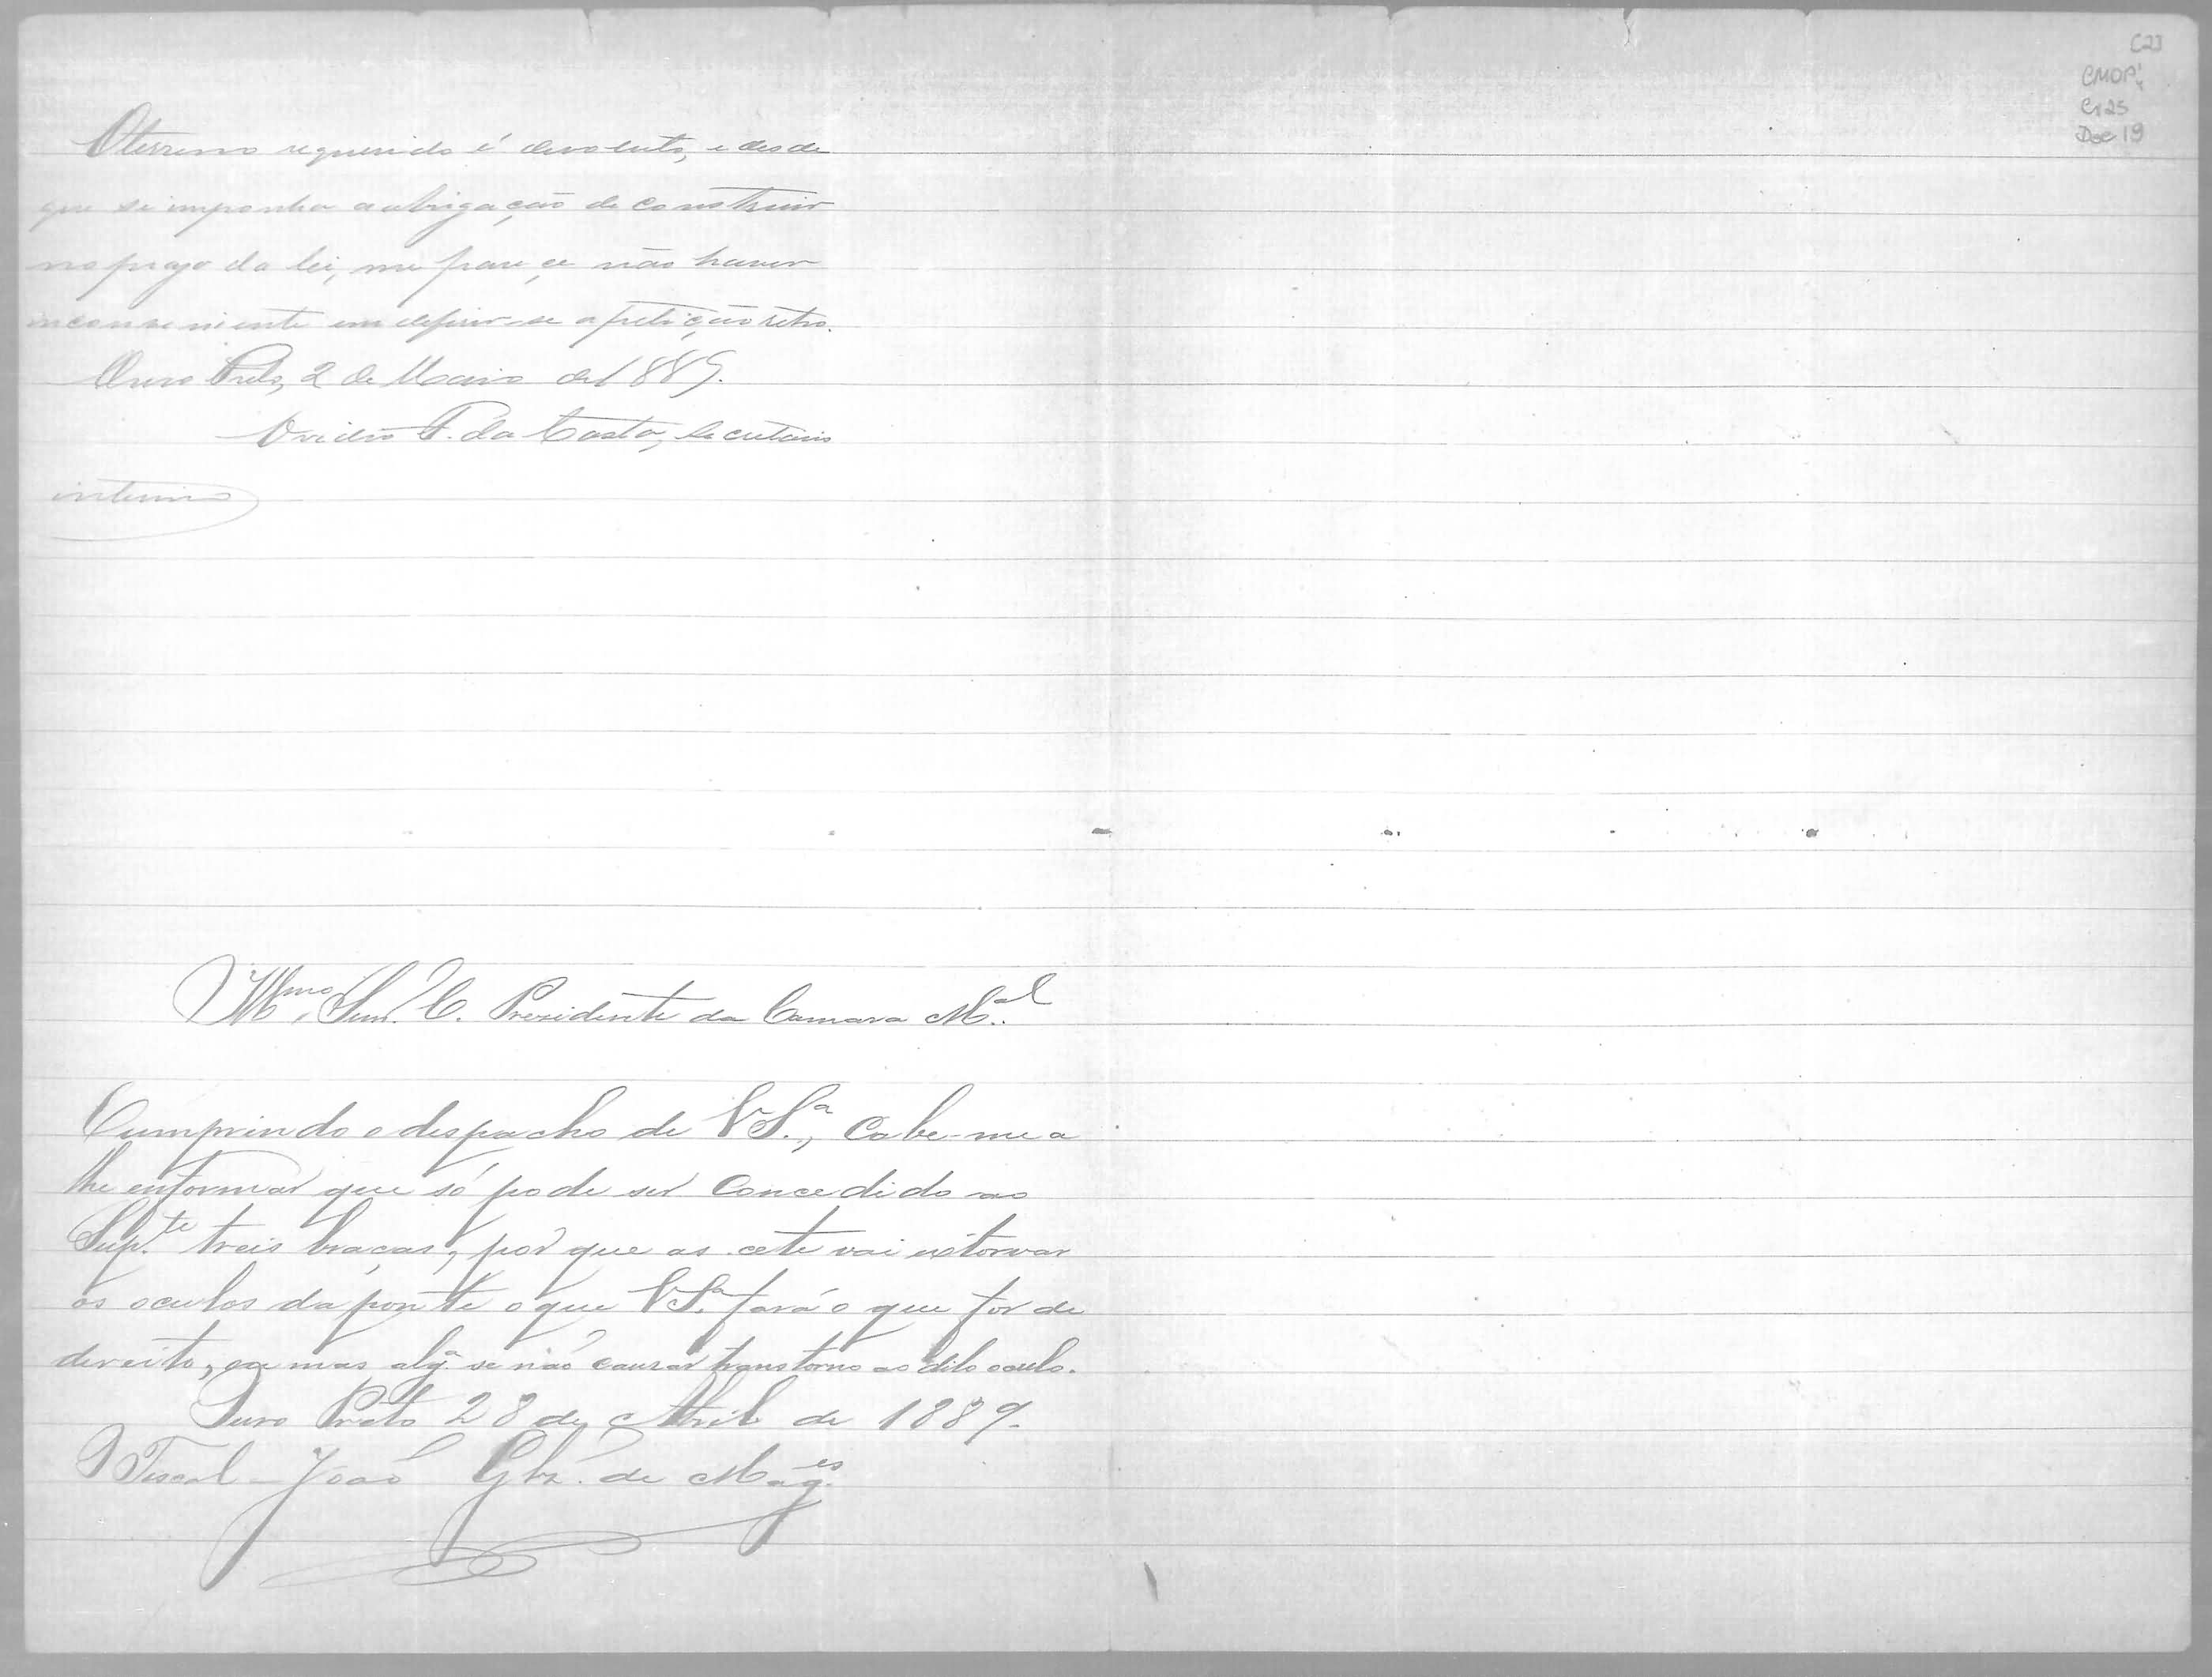 C23
CMOP
Cx25
Doc 19
O terreno requerido é devoluto, e desde
que se imponha a obrigação de construir
no prazo da lei, me parece não haver
inconveniente em deferir-se a petição retro.
Ouro Preto, 2 de Maio de 1889.
Ovidio P. da Costa, Secretario
interino
Illmo. Snr. C. Prezidente da Camara M.al
Cumprindo o despacho de V S.a, Cabe-me a
lhe enformar que só pode ser Concedido ao
Sup.te treis braças, por que as cete vai estorvar
os oculos da ponte o que V S.a fará o que for de
dereito, mas alg.a se não causar transtorno ao dito oculo.
Ouro Preto 28 de Abril de 1889.
O Fiscal - João Glz. de Mag.es